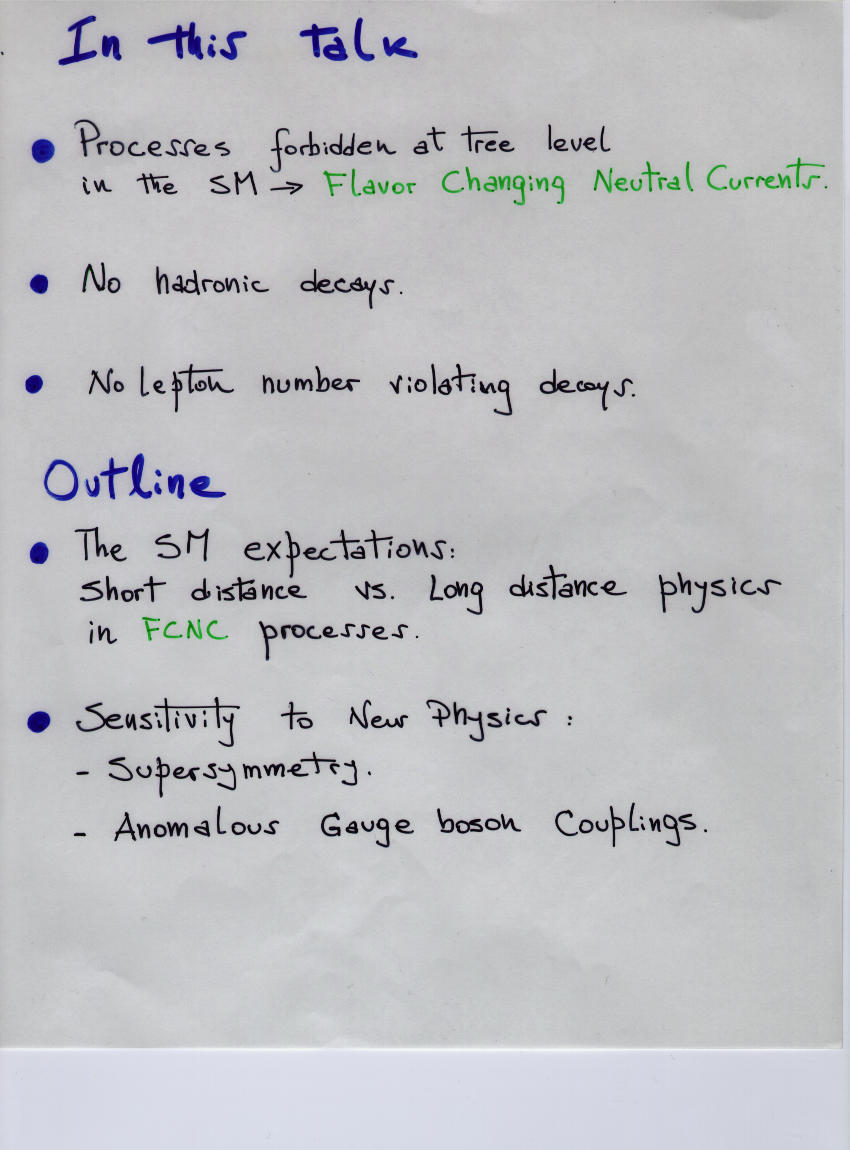 In this talk
• Processes forbidden at tree level
in the SM → Flavor Changing Neutral Currents.
• No hadronic decays.
• No lepton number violating decays.
Outline
• The SM expectations:
Short distance vs. Long distance physics
in FCNC processes.
• Sensitivity to New Physics :
- Supersymmetry.
- Anomalous Gauge boson Couplings.